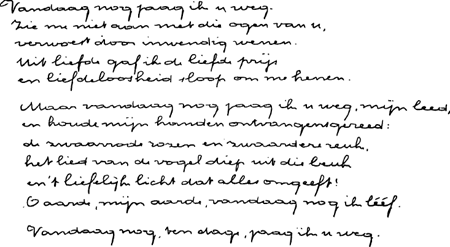 Vandaag nog jaag ik u weg.
Zie me niet aan met die ogen van u,
verwoest door inwendig wenen.
Uit liefde gaf ik de liefde prijs
en liefdeloosheid sloop om me henen.
Maar vandaag nog jaag ik u weg, mijn leed,
en houde mijn handen ontvangensgereed:
de zwaarrode rozen en zwaardere reuk,
het lied van de vogel diep uit die beuk
en 't liefelijk licht dat alles omgeeft!
O aarde, mijn aarde, vandaag nog ik lééf.
Vandaag nog, ten dage, jaag ik u weg.